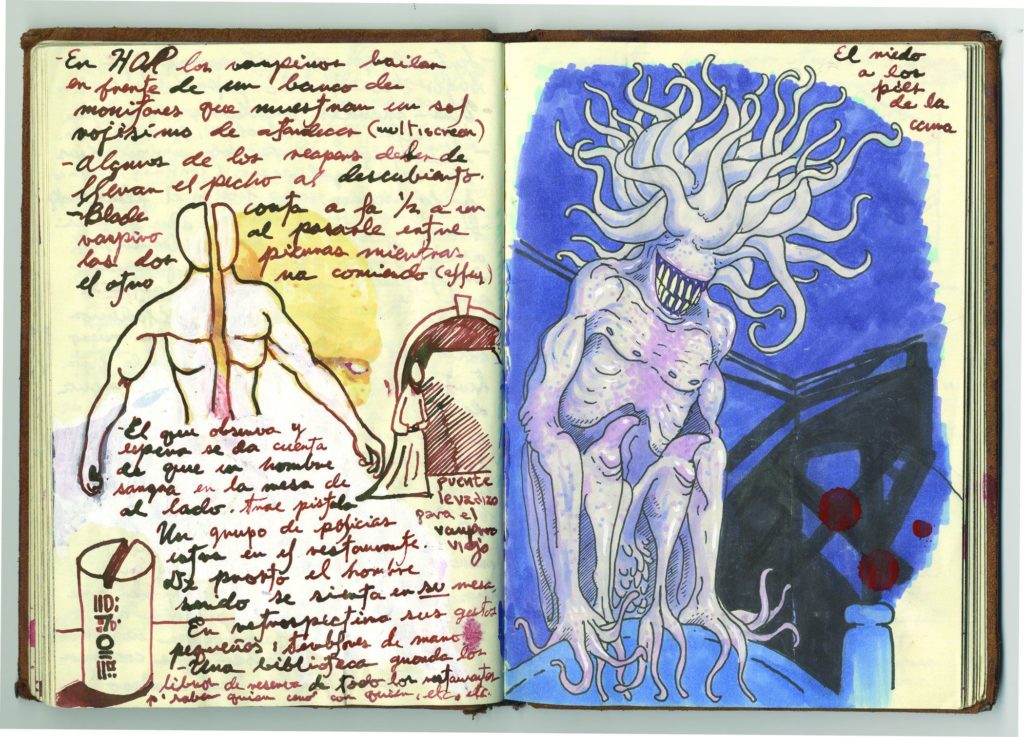 -En HOP los vampiros bailan
en frente de un banco de
monitores que muestran un sol
rojísimo de atardecer (multiscreen)
-Algunos de los reapers deben de
llevan el pecho al descubierto.
-Blade corta a la 1/2 a un
vampiro al pasarle entre
las dos piernas mientras
el otro va corriendo (effex)
-El que observa y
espera se da cuenta
de que un hombre
sangra en la mesa de
al lado. trae pistola
Un grupo de policias
entra en el restaurante.
De pronto el hombre
se sienta en su mesa,
En retrospectiva sus gestos
pequeños: temblores de mano
-Una biblioteca guarda los
libros de reserva de todos los restaurantes
p' saber quien cenó con quien, etc, etc.
puente
levadizo
para el
vampiro
viejo
El miedo
a los
pies
de la
cama